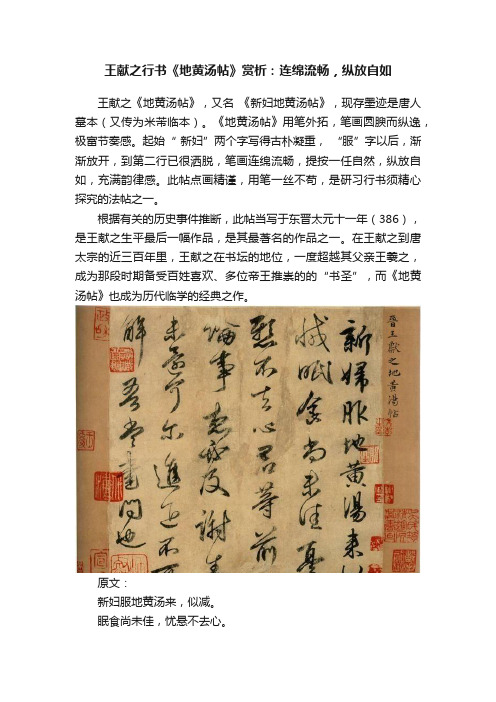 王献之行书《地黄汤帖》赏析：连绵流畅，纵放自如
王献之《地黄汤帖》，又名 《新妇地黄汤帖》，现存墨迹是唐人
摹本（又传为米芾临本）。《地黄汤帖》用笔外拓，笔画圆腴而纵逸，
极富节奏感。起始“ 新妇”两个字写得古朴凝重， “服”字以后，渐
渐放开，到第二行已很洒脱，笔画连绵流畅，提按一任自然，纵放自
如，充满韵律感。此帖点画精谨，用笔一丝不苟，是研习行书须精心
探究的法帖之一。
根据有关的历史事件推断，此帖当写于东晋太元十一年（386），
是王献之生平最后一幅作品，是其最著名的作品之一。在王献之到唐
太宗的近三百年里，王献之在书坛的地位，一度超越其父亲王羲之，
成为那段时期备受百姓喜欢、多位帝王推崇的的“书圣”，而《地黄
汤帖》也成为历代临学的经典之作。
晉王獻之地黃湯帖
新婦服地黃湯來似
減眠食尚未佳憂
懸不去心君等前
論事想必及謝生
未還可爾進退不可
解吾當書問也
原文：
新妇服地黄汤来，似减。
眠食尚未佳，忧悬不去心。